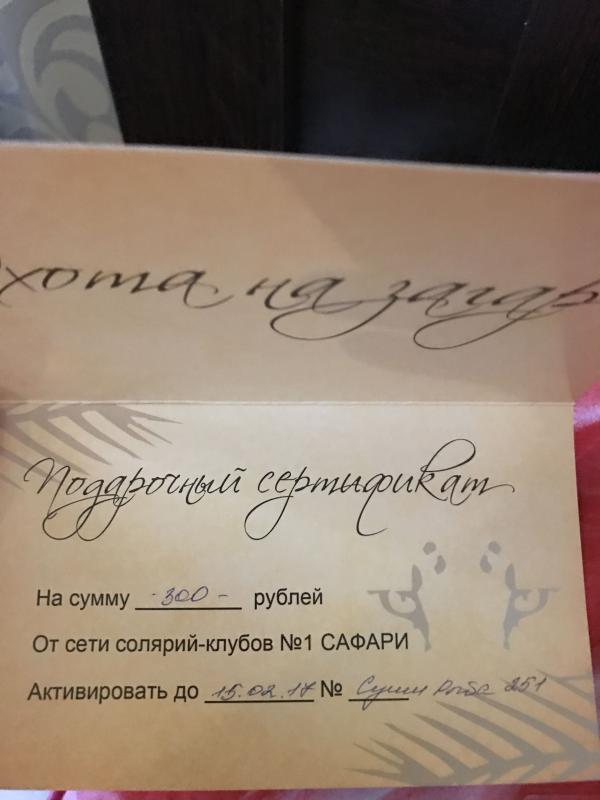 хота на загар
Подарочный сертификат
На сумму - 300 - рублей
От сети солярий-клубов №1 САФАРИ
Активировать до 15.02.17 № Суши 251